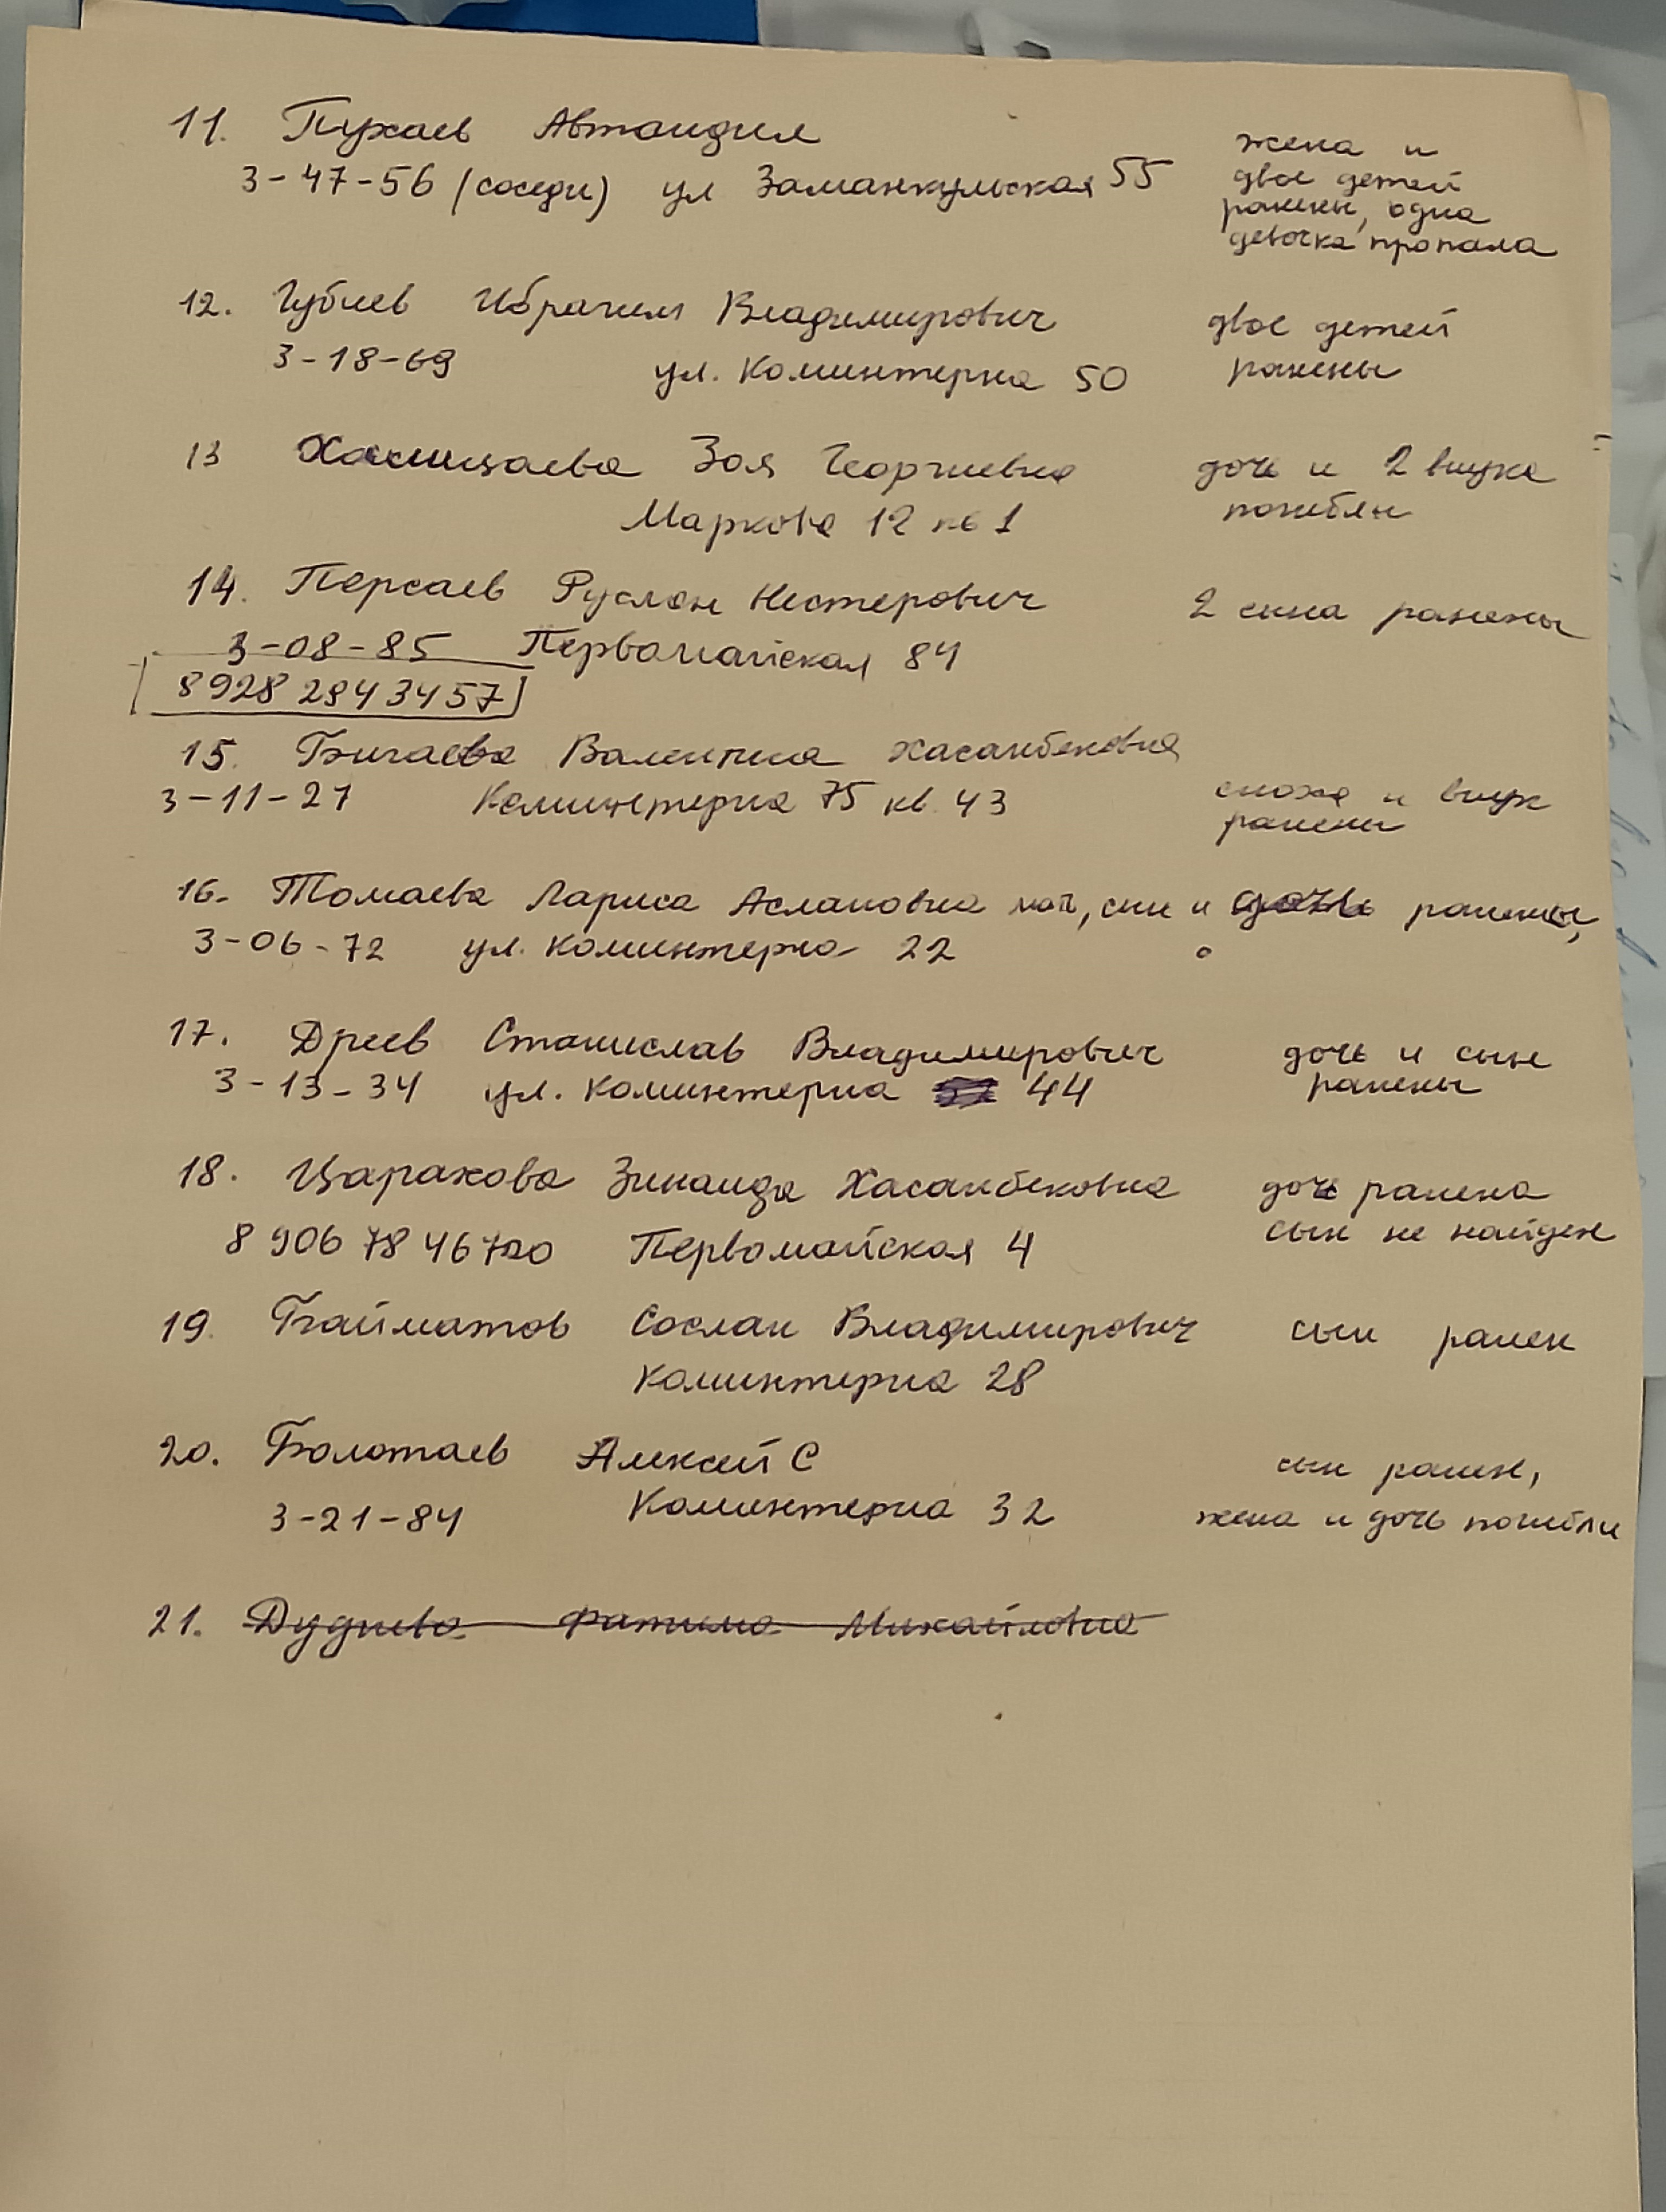 11. Пухаев Автандил
жена и
3-47-56 (соседи) ул Заманкульская 55
двое детей
ранены, одна
девочка пропала
12. Гублев Ибрагим Владимирович
двое детей
3-18-69 ул. Коминтерна 50
ранены
13 Хамицаева Зоя Георгиевна
дочь и 2 внука
Маркова 12 кв 1
погибли
14. Персаев Руслан Нестерович
2 сына ранены
3-08-85 Первомайская 84
8928 2843457
15. Бигаева Валентина Хасанбековна
3-11-27 Коминтерна 75 кв. 43
сноха и внук
ранены
16. Томаева Лариса Аслановна мать, сын и дочь ранены,
3-06-72 ул. Коминтерна 22
17. Дреев Станислав Владимирович
дочь и сын
3-13-34 ул. Коминтерна 44
ранены
18. Царахова Зинаида Хасанбековна
дочь ранена
сын не найден
8 906 78 46700 Первомайская 4
19. Байматов Сослан Владимирович сын ранен
Коминтерна 28
20. Болотаев Алексей С
сын ранен,
3-21-84 Коминтерна 32
жена и дочь погибли
21. Дудиева Фатима Михайловна